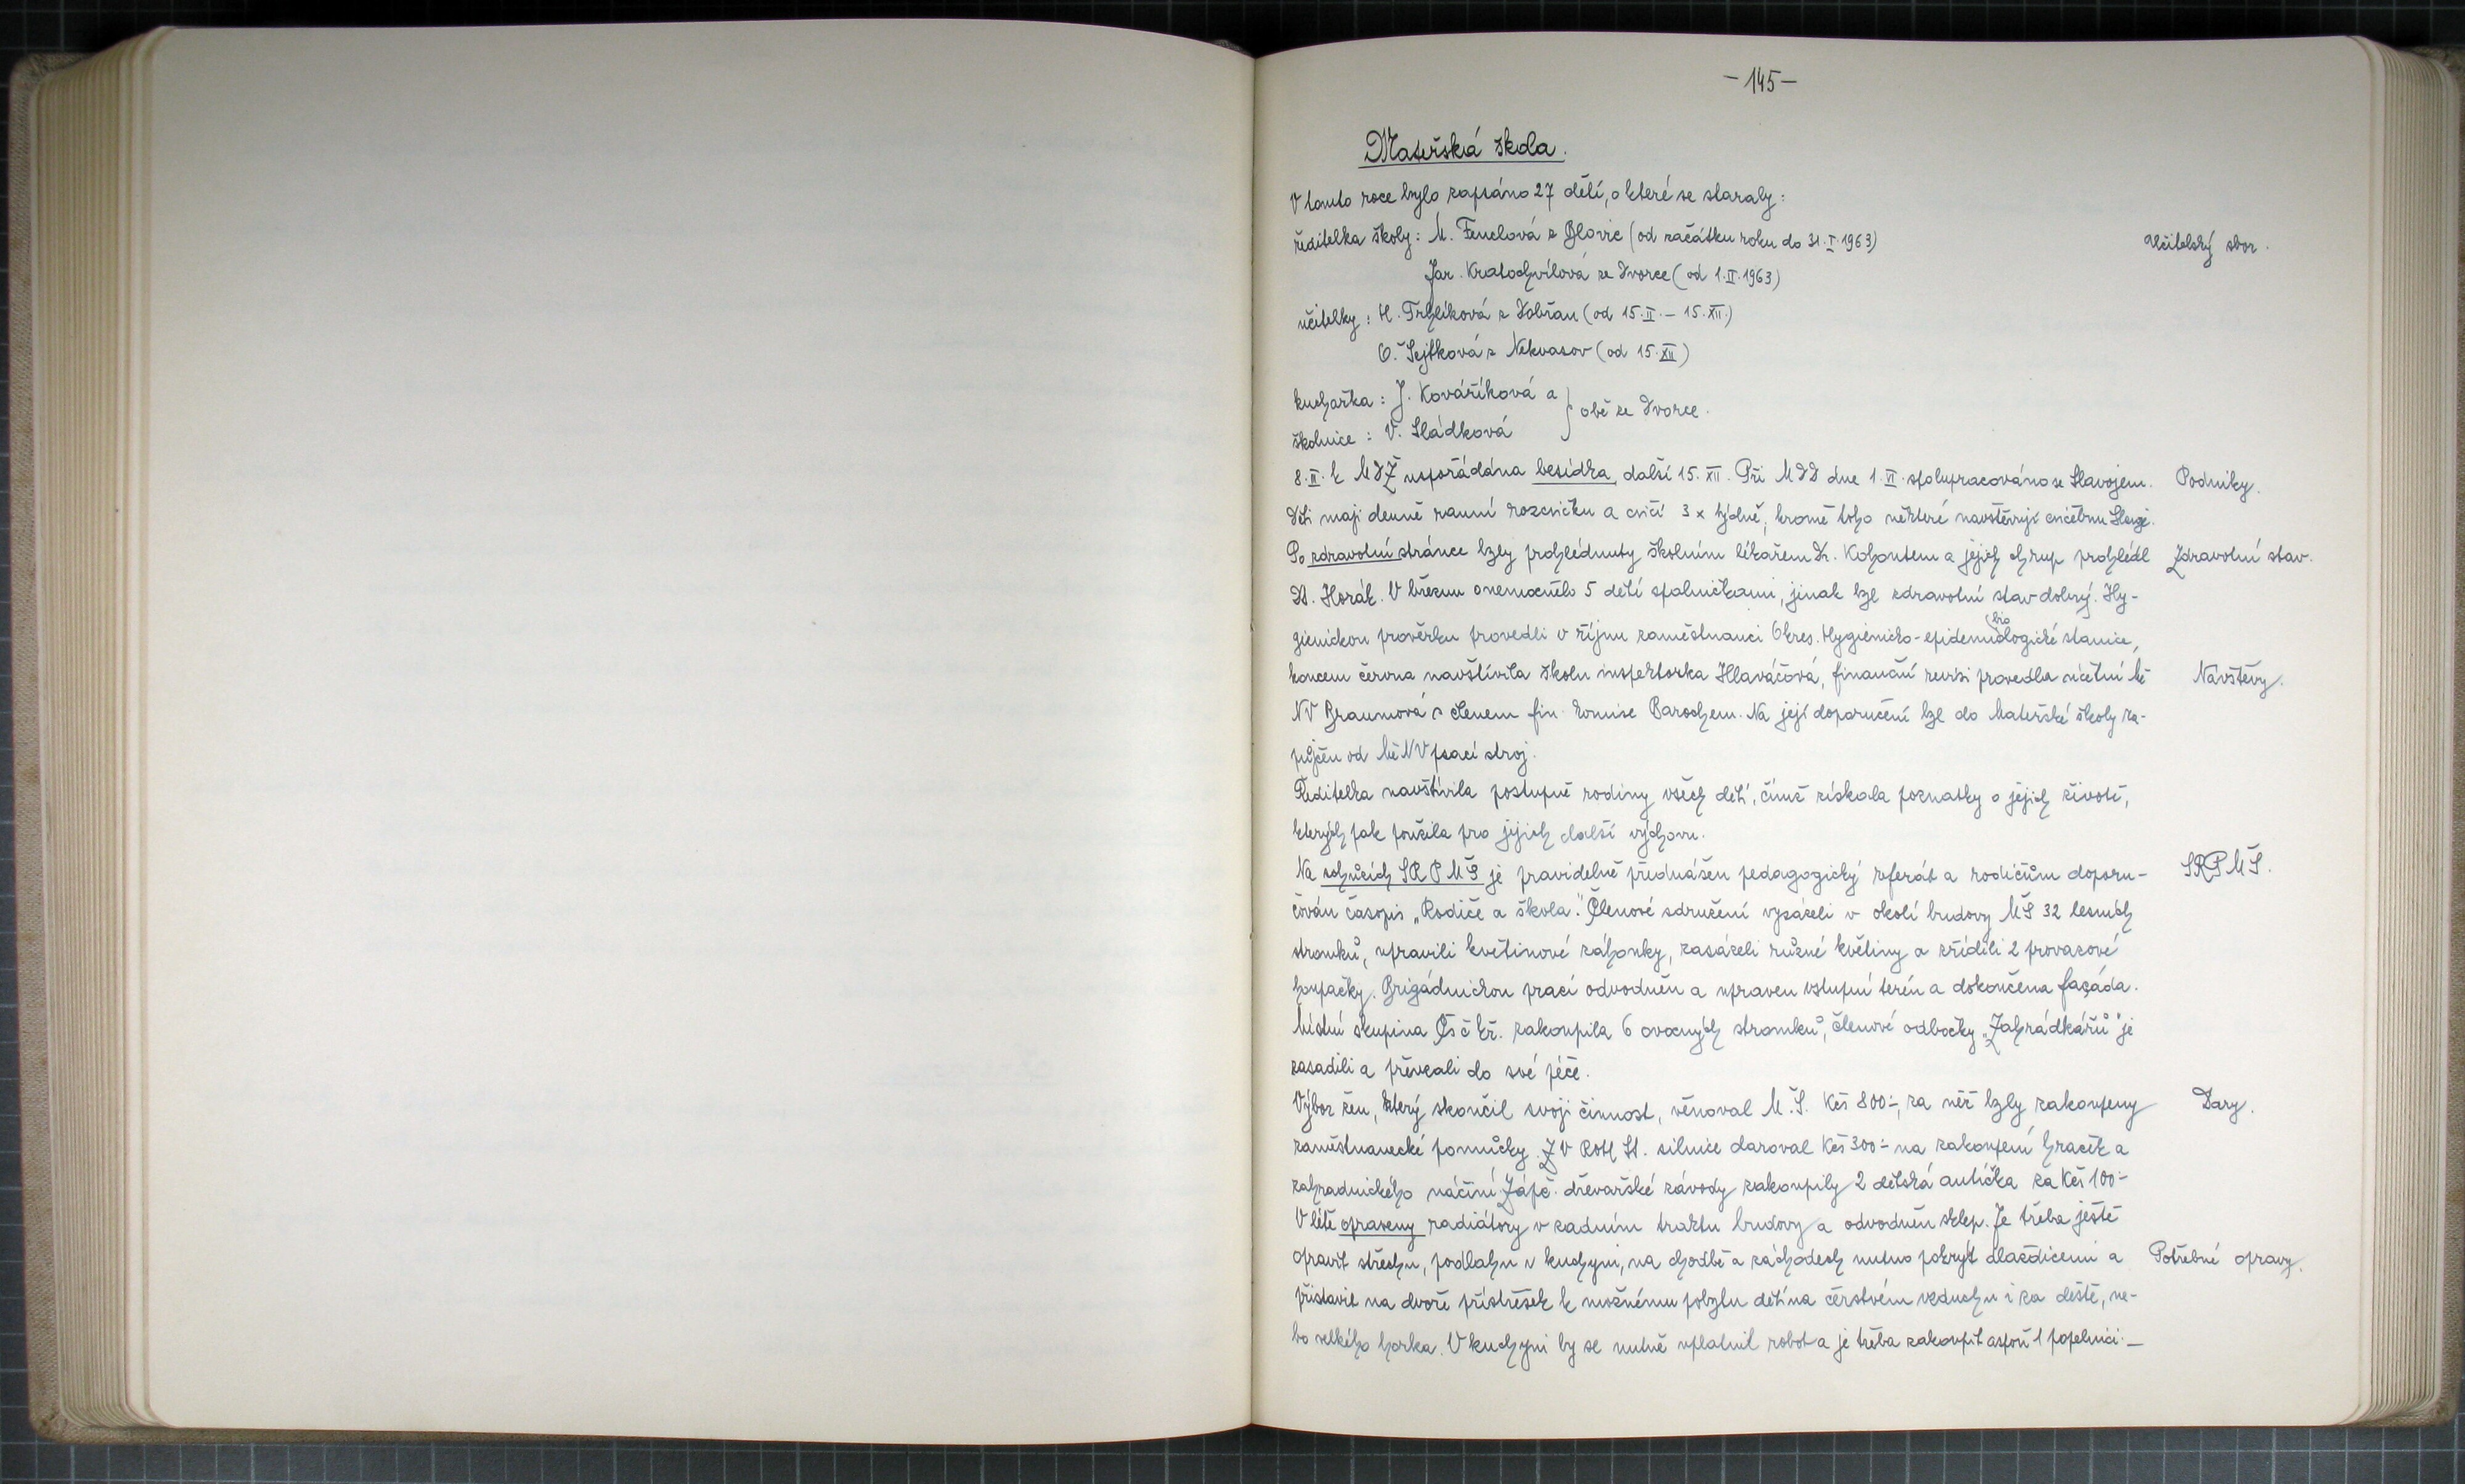 -145-
Mateřská škola.
V tomto roce bylo zapsáno 27 dětí, o které se staraly:
ředitelka školy: M. Fenclová z Blovic (od začátku roku do 31.I.1963)
učitelský sbor.
Jar. Kratochvílová ze Dvorce (od 1.II.1963)
učitelky: H. Trhlíková z Dobřan (od 15.II. - 15.XII.)
O. Šejtková z Nekvasov (od 15.XII)
kuchařka: J. Kovaříková a
} obě ze Dvorce.
školnice: V. Sládková
8.III. k MDŽ uspořádána besídka, další 15.XII. Při MDD dne 1.VI. spolupracováno se Slavojem.
Podniky.
Děti mají denně ranní rozcvičku a cvičí 3x týdně, kromě toho některé navštěvují cvičebnu Slavoje.
Po zdravotní stránce byly prohlédnuty školním lékařem Dr. Kohoutem a jejich chrup prohlédl
Zdravotní stav.
Dr. Horák. V březnu onemocnělo 5 dětí spalničkami, jinak byl zdravotní stav dobrý. Hy-
gienickou prověrku provedli v říjnu zaměstnanci Okres. Hygienicko-epidemiologické stanice,
koncem června navštívila školu inspektorka Hlaváčová, finanční revisi provedla účetní Mě
Návštěvy.
NV Braumová s členem fin. komise Barochem. Na její doporučení byl do Mateřské školy za-
půjčen od MěNV psací stroj.
Ředitelka navštívila postupně rodiny všech dětí, čímž získala poznatky o jejich životě,
kterých pak použila pro jejich další výchovu.
Na schůzích SRPMŠ je pravidelně přednášen pedagogický referát a rodičům doporu-
SRPMŠ.
čován časopis „Rodiče a škola." Členové sdružení vysázeli v okolí budovy MŠ 32 lesních
stromků, upravili květinové záhonky, zasázeli různé květiny a zřídili 2 provazové
houpačky. Brigádnickou prací odvodněn a upraven vstupní terén a dokončena façáda.
Místní skupina ČsČkř. zakoupila 6 ovocných stromků, členové odbočky „Zahrádkářů" je
zasadili a převzali do své péče.
Výbor žen, který skončil svoji činnost, věnoval M.Š. Kčs 800:-, za něž byly zakoupeny
Dary.
zaměstnanecké pomůcky. ZV ROH St. silnice daroval Kčs 300:- na zakoupení hraček a
zahradnického náčiní. Zápč. dřevařské závody zakoupily 2 dětská autíčka za Kčs 100:-
V létě opraveny radiátory v zadním traktu budovy a odvodněn sklep. Je třeba ještě
opravit střechu, podlahu v kuchyni, na chodbě a záchodech nutno pokrýt dlaždicemi a
Potřebné opravy.
přistavit na dvoře přístřešek k možnému pobytu dětí na čerstvém vzduchu i za deště, ne-
bo velkého horka. V kuchyni by se nutně uplatnil robot a je třeba zakoupit aspoň 1 popelnici.-